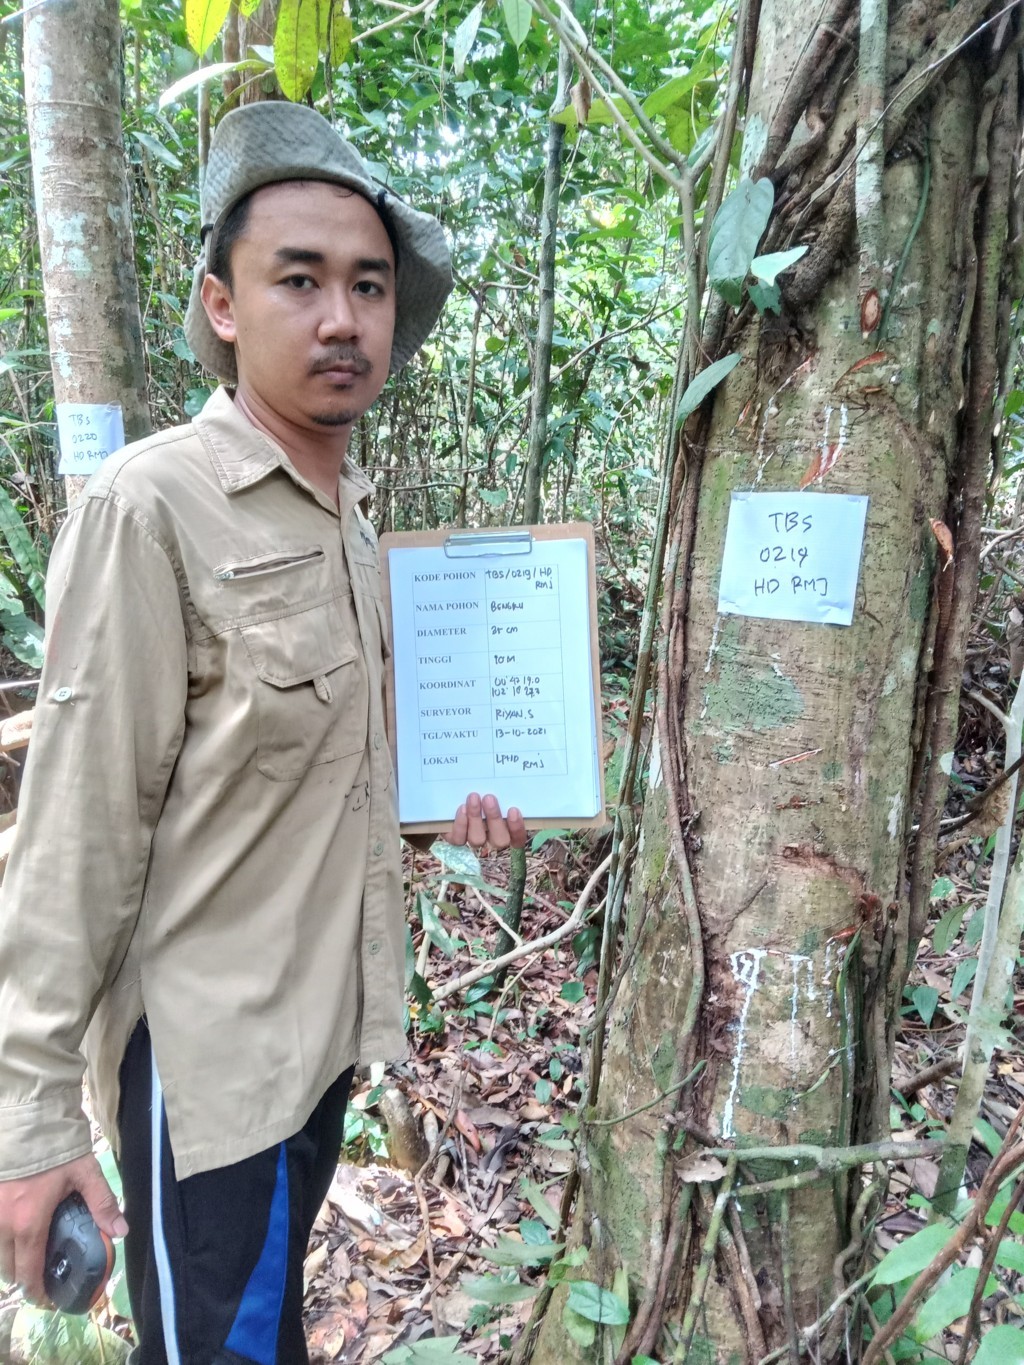 TBS
0220
HD RMJ
KODE POHON TBS/0219/HD
RMJ
NAMA POHON BENGKU
DIAMETER 35 cm
TINGGI 10 M
KOORDINAT
SURVEYOR RIYAN.S
TGL/WAKTU 13-10-2021
LOKASI LPHD
RMJ
TBS
0219
HD RMJ